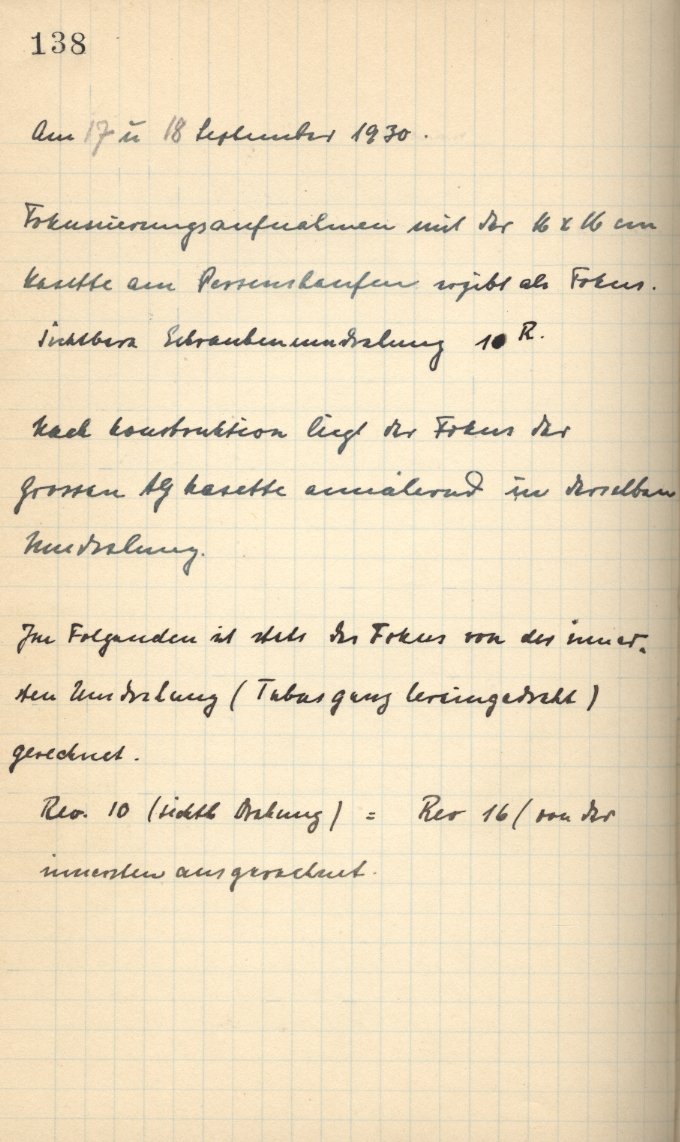 138
Am 17 u 18 September 1930.
Fokusierungsaufnahmen mit der 16 x 16 cm
Kasette am Perseushaufen ergibt als Fokus.
Sichtbare Schraubenumdrehung 10 R.
Nach Konstruktion liegt der Fokus der
grossen AG Kasette annähernd in derselben
Umdrehung.
Im Folgenden ist stets der Fokus von der inner-
sten Umdrehung (Tubus ganz hereingedreht)
gerechnet.
Rev. 10 (sichtb Drehung) = Rev 16 (von der
innersten aus gerechnet.